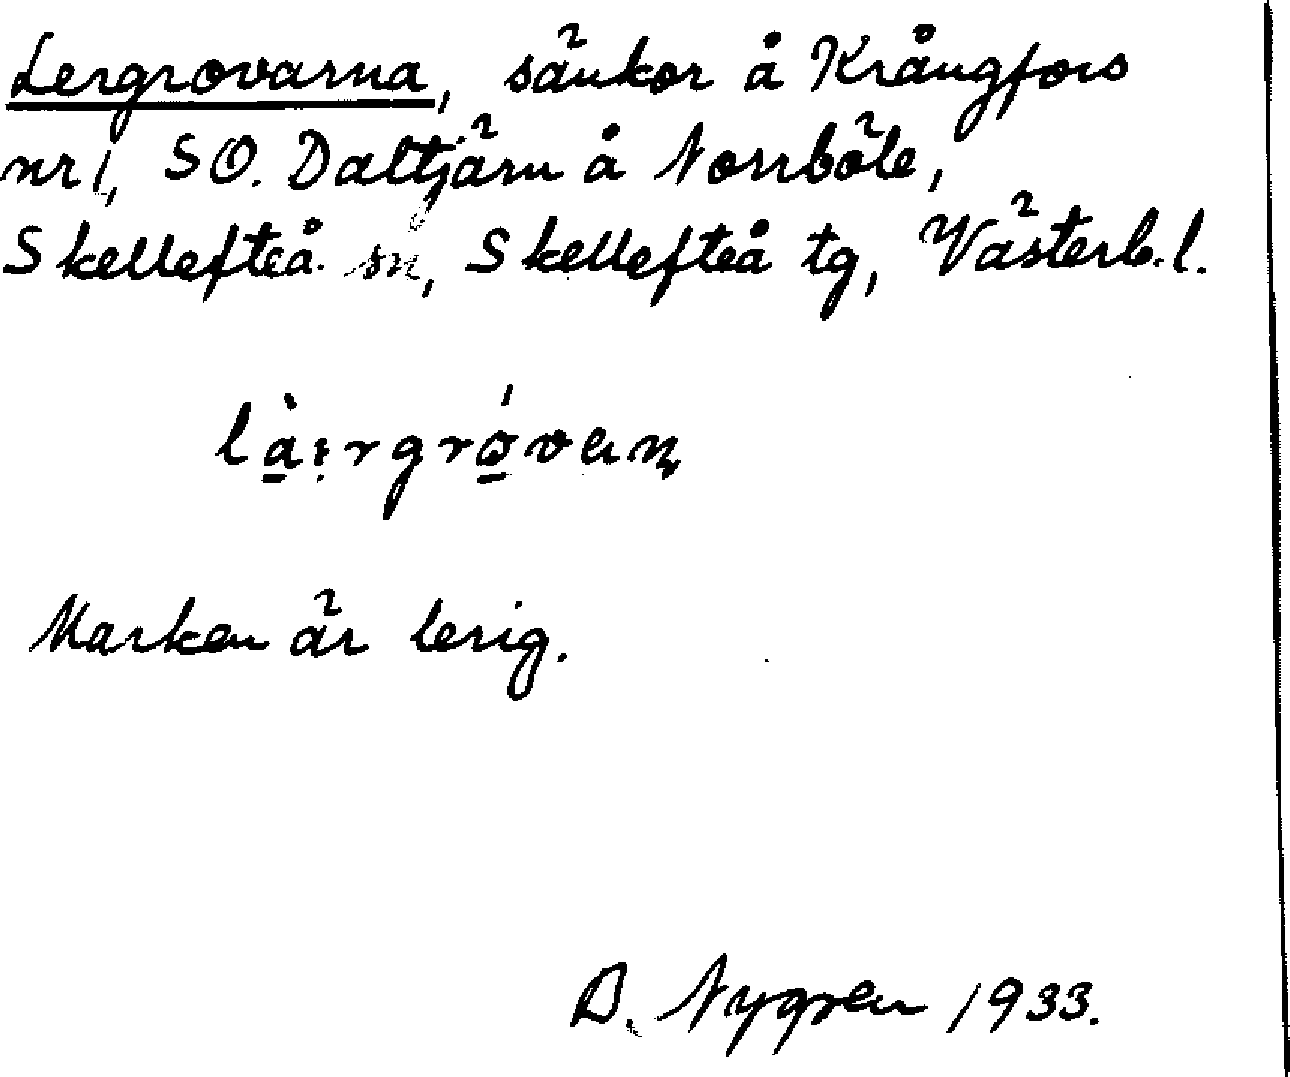 Lergrovarna, sänkor å Krångfors
nr 1, SO. Daltjärn å Norrböle,
Skellefteå sn, Skellefteå tg, Västerb. l.
Marken är lerig.
D. Nygren 1933.